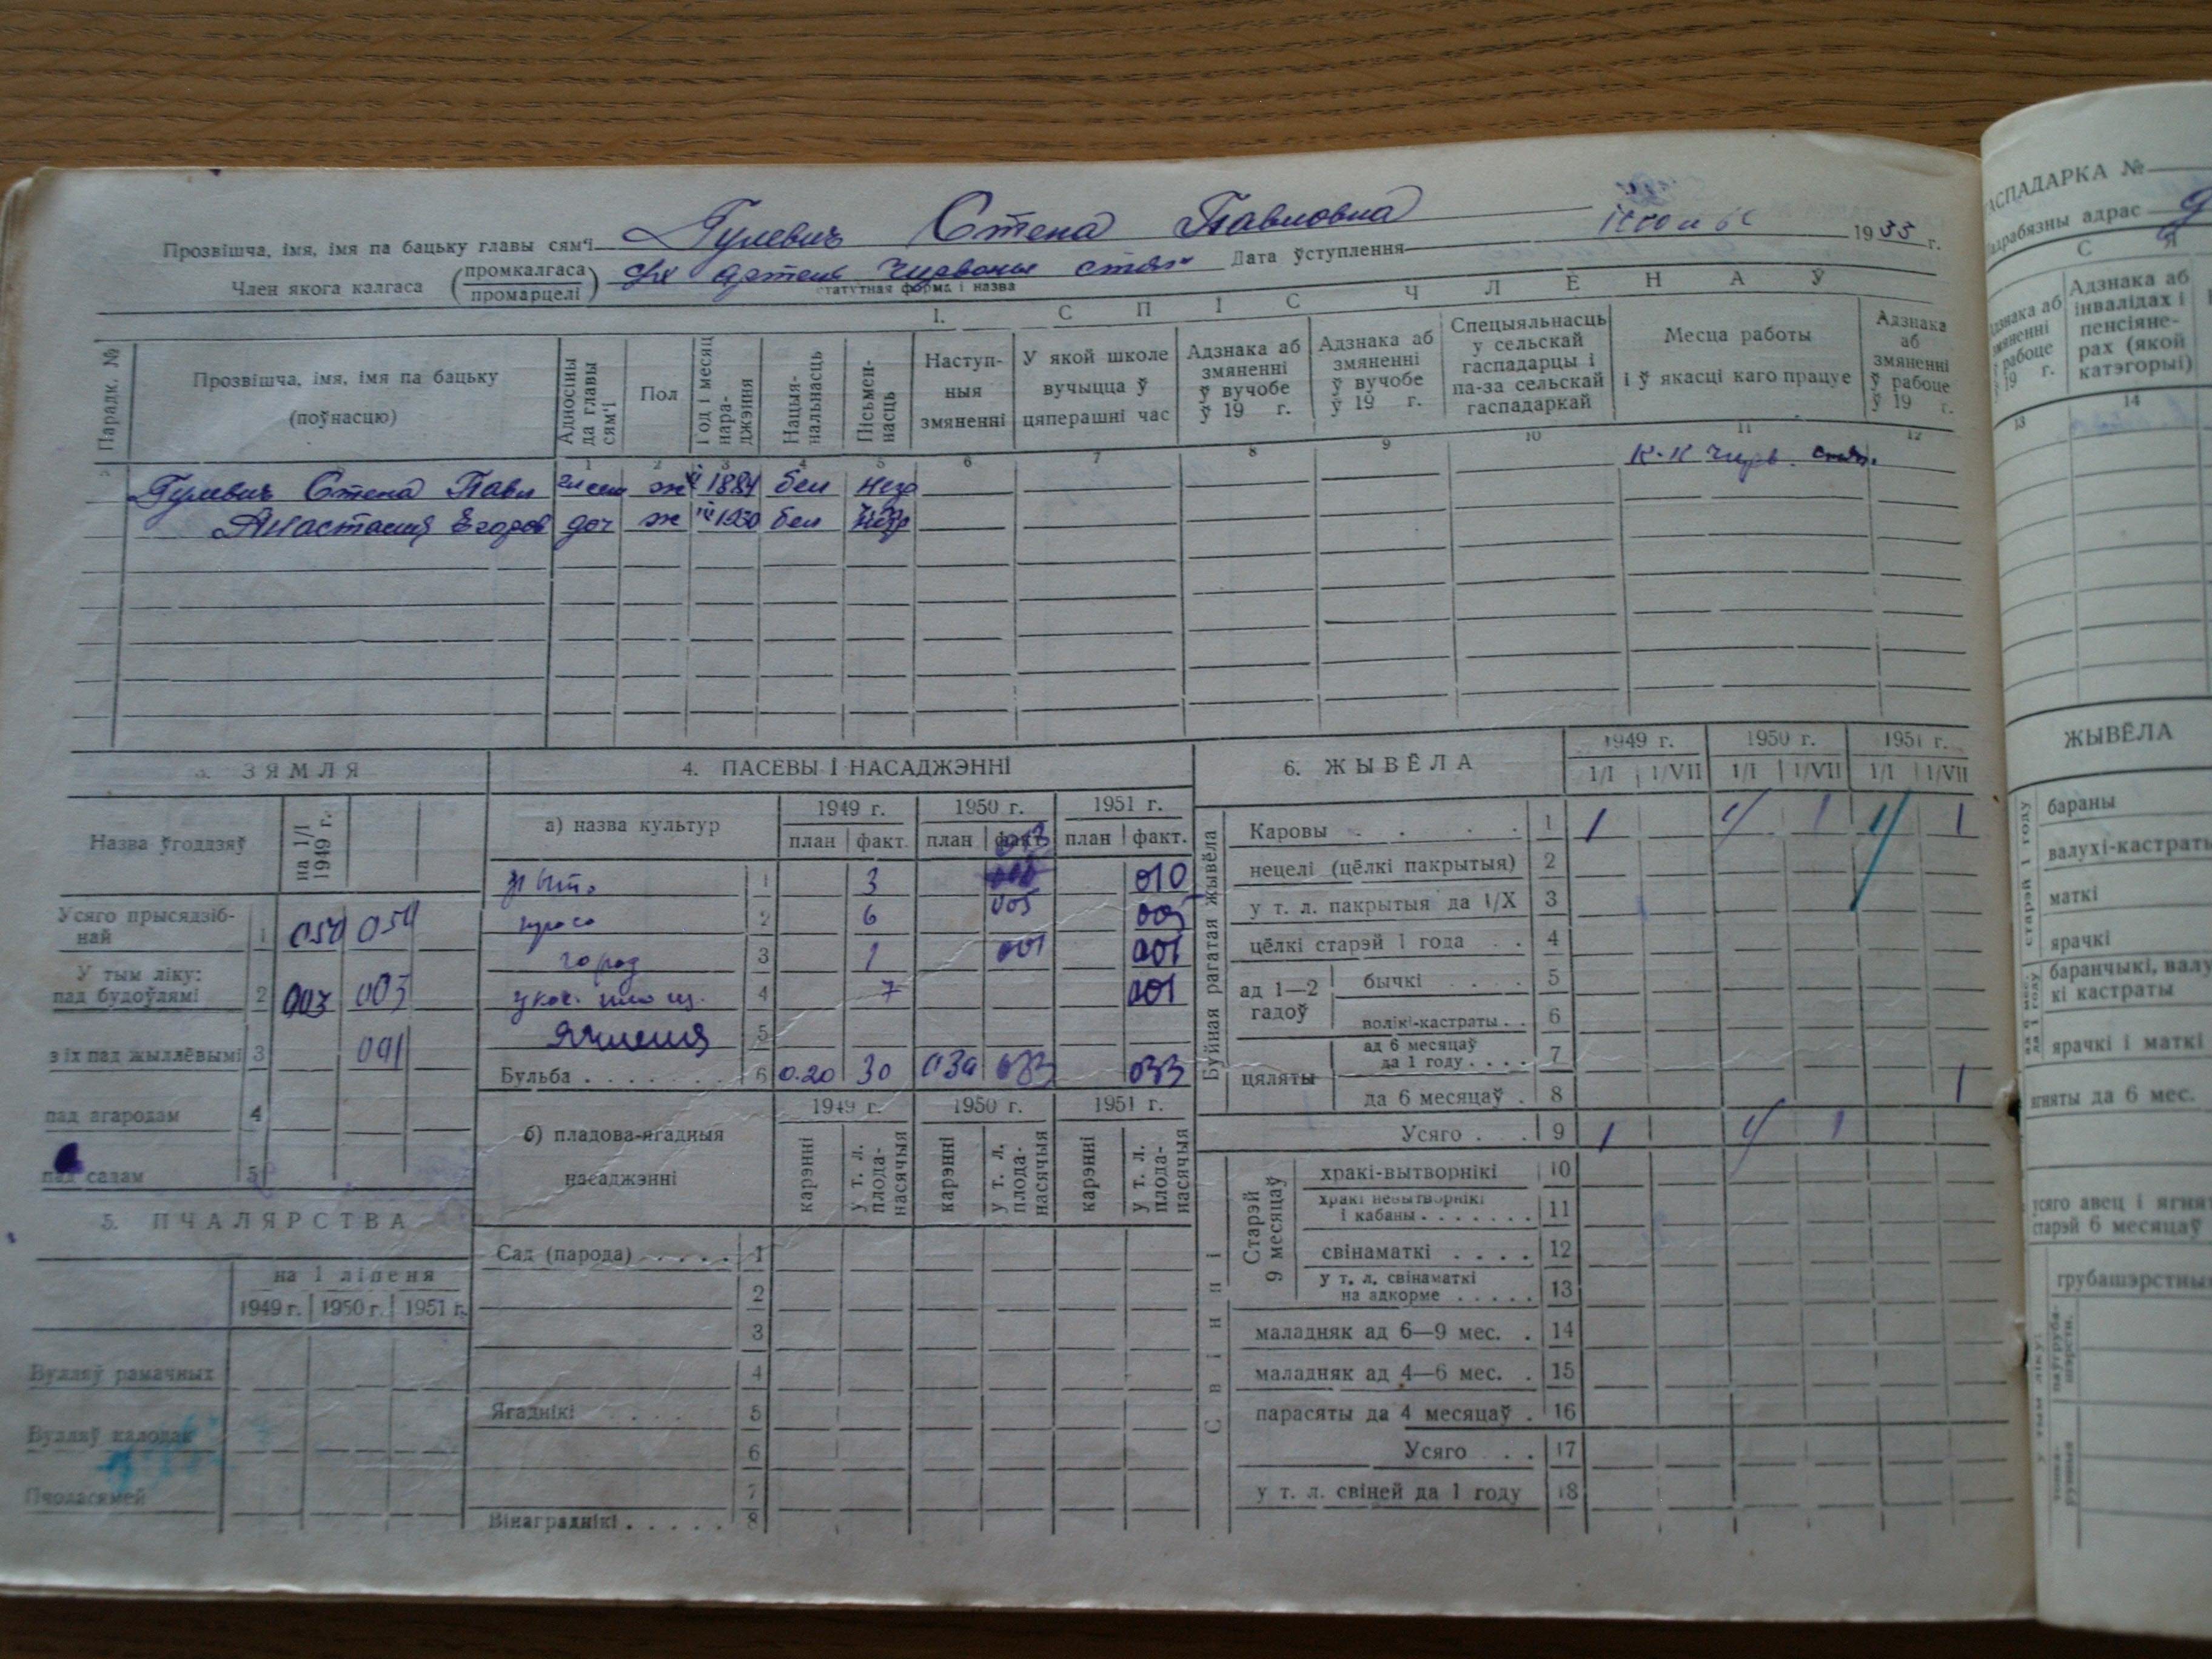 Гулевич Степа Павловна
Прозвішча, імя, імя па бацьку главы сям'і
Дата ўступлення
1935 г.
Член якога калгаса (промкалгаса / промарцелі)
с/х артель Чырвоны
статутная форма і назва
I. СПІС ЧЛЕНАЎ
Парадк. №
Прозвішча, імя, імя па бацьку (поўнасцю)
Адносіны да главы сям'і
Пол
Год і месяц нараджэння
Нацыянальнасць
Пісьменнасць
Наступныя змяненні
У якой школе вучыцца ў цяперашні час
Адзнака аб змяненні ў вучобе ў 19 г.
Адзнака аб змяненні ў вучобе ў 19 г.
Спецыяльнасць у сельскай гаспадарцы і па-за сельскай гаспадаркай
Месца работы і ў якасці каго працуе
Адзнака аб змяненні ў рабоце ў 19 г.
1 2 3 4 5 6 7 8 9 10 11 12
Гулевич Степа Павл ж 1884 бел
к-к Черв.
Анастасия Егоров доч ж 1930 бел
3. ЗЯМЛЯ
Назва ўгоддзяў
на 1/I 1949 г.
Усяго прысядзібнай 1 050 050
У тым ліку: пад будоўлямі 2 003 003
з іх пад жыллёвымі 3 001
пад агародам 4
пад садам 5
5. ПЧАЛЯРСТВА
на 1 ліпеня
1949 г. 1950 г. 1951 г.
Вулляў рамачных
Вулляў калодак
Пчоласямей
4. ПАСЕВЫ І НАСАДЖЭННІ
а) назва культур
1949 г. 1950 г. 1951 г.
план факт. план факт. план факт.
жыто 1 3 010
просо 2 6 005 005
город 3 1 001 001
4 7 001
Ячменя 5
Бульба 6 0.20 30 033 033
б) пладова-ягадныя насаджэнні
1949 г. 1950 г. 1951 г.
карэнні у т. л. пладанасячыя карэнні у т. л. пладанасячыя карэнні у т. л. пладанасячыя
Сад (парода) 1
2
3
4
Ягаднікі 5
6
7
Вінаграднікі 8
6. ЖЫВЁЛА
1949 г. 1950 г. 1951 г.
1/I 1/VII 1/I 1/VII 1/I 1/VII
Буйная рагатая жывёла
Каровы 1 1 1 1
нецелі (цёлкі пакрытыя) 2
у т. л. пакрытыя да 1/X 3
цёлкі старэй 1 года 4
ад 1—2 гадоў
бычкі 5
волікі-кастраты 6
цяляты
ад 6 месяцаў да 1 году 7
да 6 месяцаў 8 1
Усяго 9 1 1
Свінні
Старэй 9 месяцаў
хракі-вытворнікі 10
хракі невытворнікі і кабаны 11
свінаматкі 12
у т. л. свінаматкі на адкорме 13
маладняк ад 6—9 мес. 14
маладняк ад 4—6 мес. 15
парасяты да 4 месяцаў 16
Усяго 17
у т. л. свіней да 1 году 18
ГАСПАДАРКА №
адрас
С Я
Адзнака аб змяненні ў рабоце ў 19 г.
Адзнака аб інвалідах і пенсіянерах (якой катэгорыі)
13 14
ЖЫВЁЛА
старэй 1 году
бараны
валухі-кастраты
маткі
ярачкі
ад 6 мес. да 1 году
ярачкі і маткі
ягняты да 6 мес.
старэй 6 месяцаў
у тым ліку: